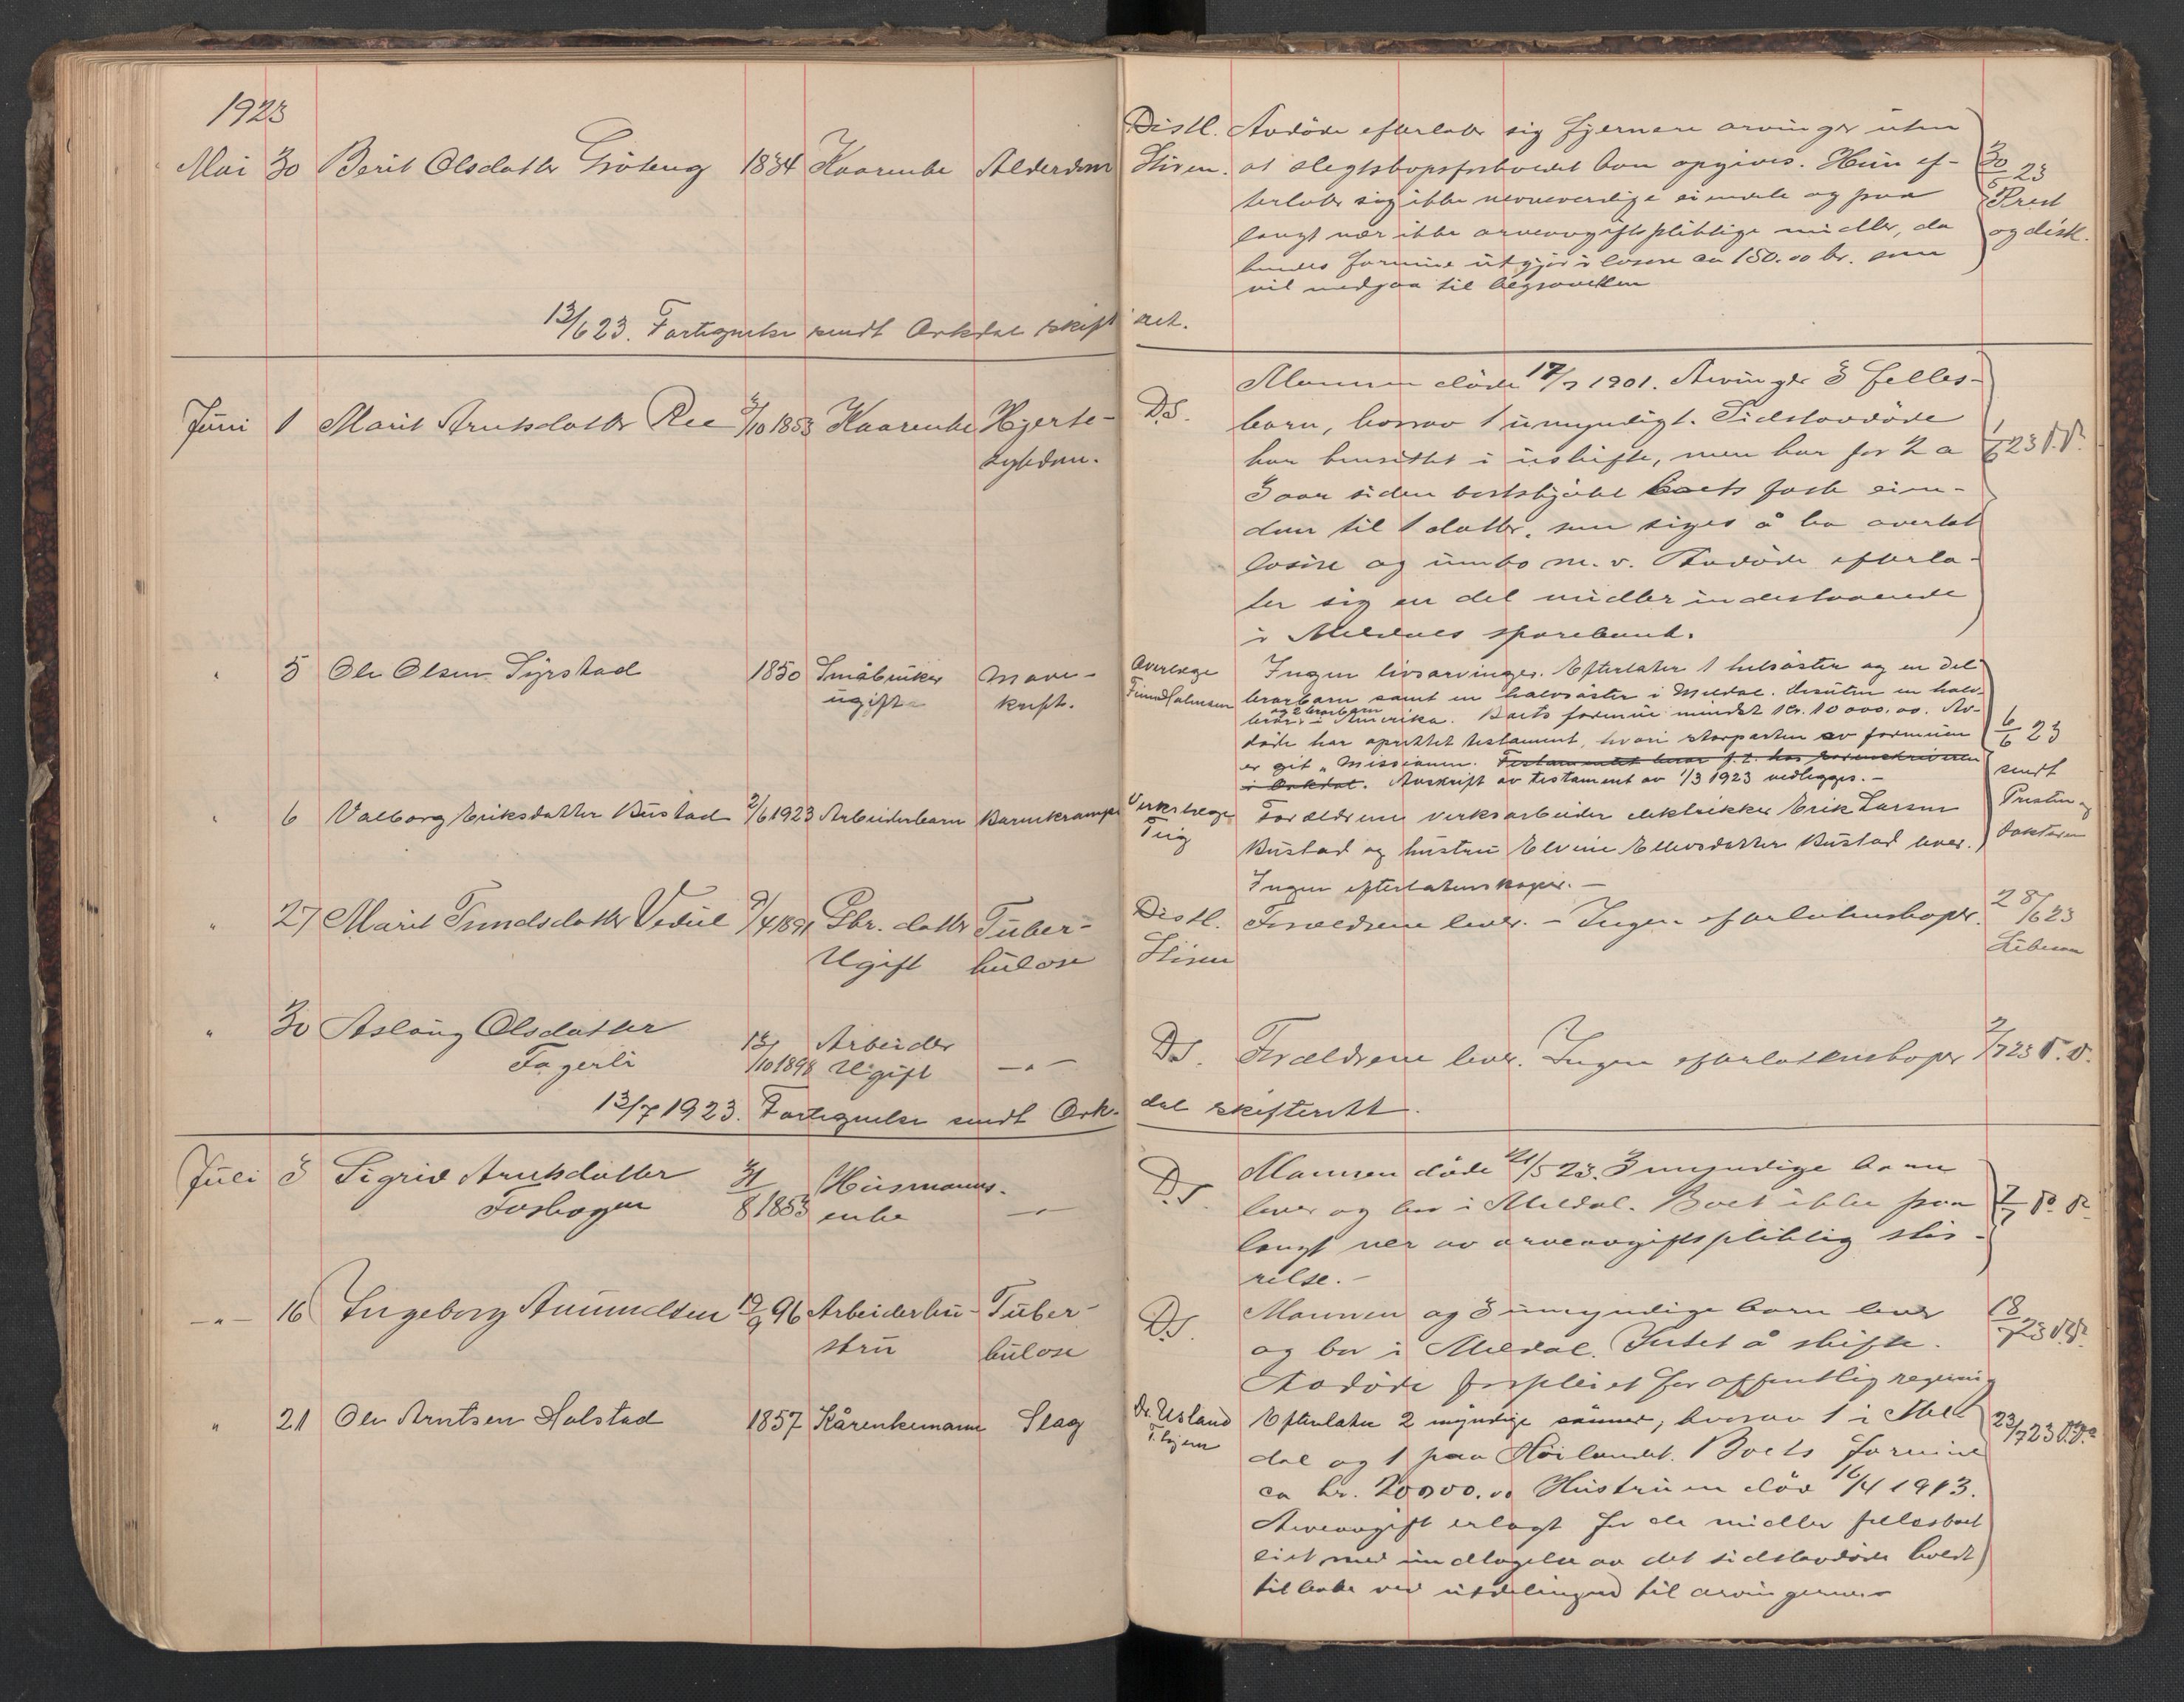 1923
Mai 30 Berit Olsdatter Gröteng 1834 Kaarenke Alderdom
Distl. Avdöde efterlater sig fjernere arvinger uten
Stören. at slegtskapsforholdet kan opgives. Hun ef-
terlater sig ikke nevneverdige eiendele og paa
langt nær ikke arveavgiftspliktige midler, da
hendes formue utgjör i lösöre ca 150.00 kr. som
vil medgaa til begravelsen
30/5 23
Prest
og distl.
13/6 23. Fortegnelse sendt Orkdal skifteret.
Juni 1 Marit Arntsdatter Ree 3/10 1853 Kaarenke Hjerte-
sykdom.
Ds. Mannen döde 17/7 1901. Arvinger 3 felles-
barn, hvorav 1 umyndigt. Sidstavdöde
har hensittet i uskifte, men har for 2 a
3 aar siden bortskjötet boets faste eien-
dom til 1 datter, som siges å ha overtat
lösöre og innbo m.v. Avdöde efterla-
ter sig en del midler indestaaende
i Meldals sparebank.
1/6 23 P.D.
" 5 Ole Olsen Syrstad 1850 Småbruker Mave-
ugift kreft.
Overlege Ingen livsarvinger. Efterlater 1 helsöster og en del
brorbarn samt en halvsöster i Meldal. Desuten en halv-
bror og 2 brorbarn i Amerika. Boets formue mindst kr. 10 000.00. Av-
döde har oprettet testament, hvori storparten av formuen
er git "Missionen. Testamentet beror f.t. hos sorenskriveren
i Orkdal. Avskrift av testament av 1/3 1923 vedlegges. -
6/6 23
sendt
Presten og
doktoren
" 6 Valborg Eriksdatter Bustad 2/6 1923 Arbeiderbarn Barnekrampe
Verkslege Forældrene verksarbeider elektrikker Erik Larsen
Teig Bustad og hustru Elvine Ellevsdatter Bustad lever.
Ingen efterlatenskaper. -
" 27 Marit Trondsdatter Vedul 9/4 1891 Gbr. datter Tuber-
Ugift kulose
Distl. Forældrene lever. - Ingen efterlatenskaper. 28/6 23
Stören
" 30 Aslaug Olsdatter
Fagerli 13/10 1898 Arbeider
Ugift - " -
Ds. Forældrene lever. Ingen efterlatenskaper 2/7 23 P.D.
13/7 1923. Fortegnelse sendt Orkdal skifterett.
Juli 3 Sigrid Arntsdatter 31/8 1853 Husmanns-
Foshagen enke - " -
Ds. Mannen döde 21/5 23. 3 myndige barn
lever og bor i Meldal. Boet ikke paa
langt nær av arveavgiftspliktig stör-
relse. -
- " - 16 Ingeborg Amundsen 19/9 96 Arbeiderhu- Tuber-
stru kulose
Ds. Mannen og 3 umyndige barn lever
og bor i Meldal. Intet å skifte.
Avdöde forpleiet for offentlig regning
18/7 23 P.D.
" 21 Ole Arntsen Halstad 1857 Kårenkemann Slag
Dr. Usland Efterlater 2 myndige sönner, hvorav 1 i Mel-
dal og 1 paa Höilandet. Boets formue
ca kr. 20000.00 Hustruen död 16/4 1913.
Arveavgift erlagt for de midler fellesboet
eiet med undtagelse av det sidstavdöde holdt
tilbake ved utdelingen til arvingerne. -
23/7 23 P.D.